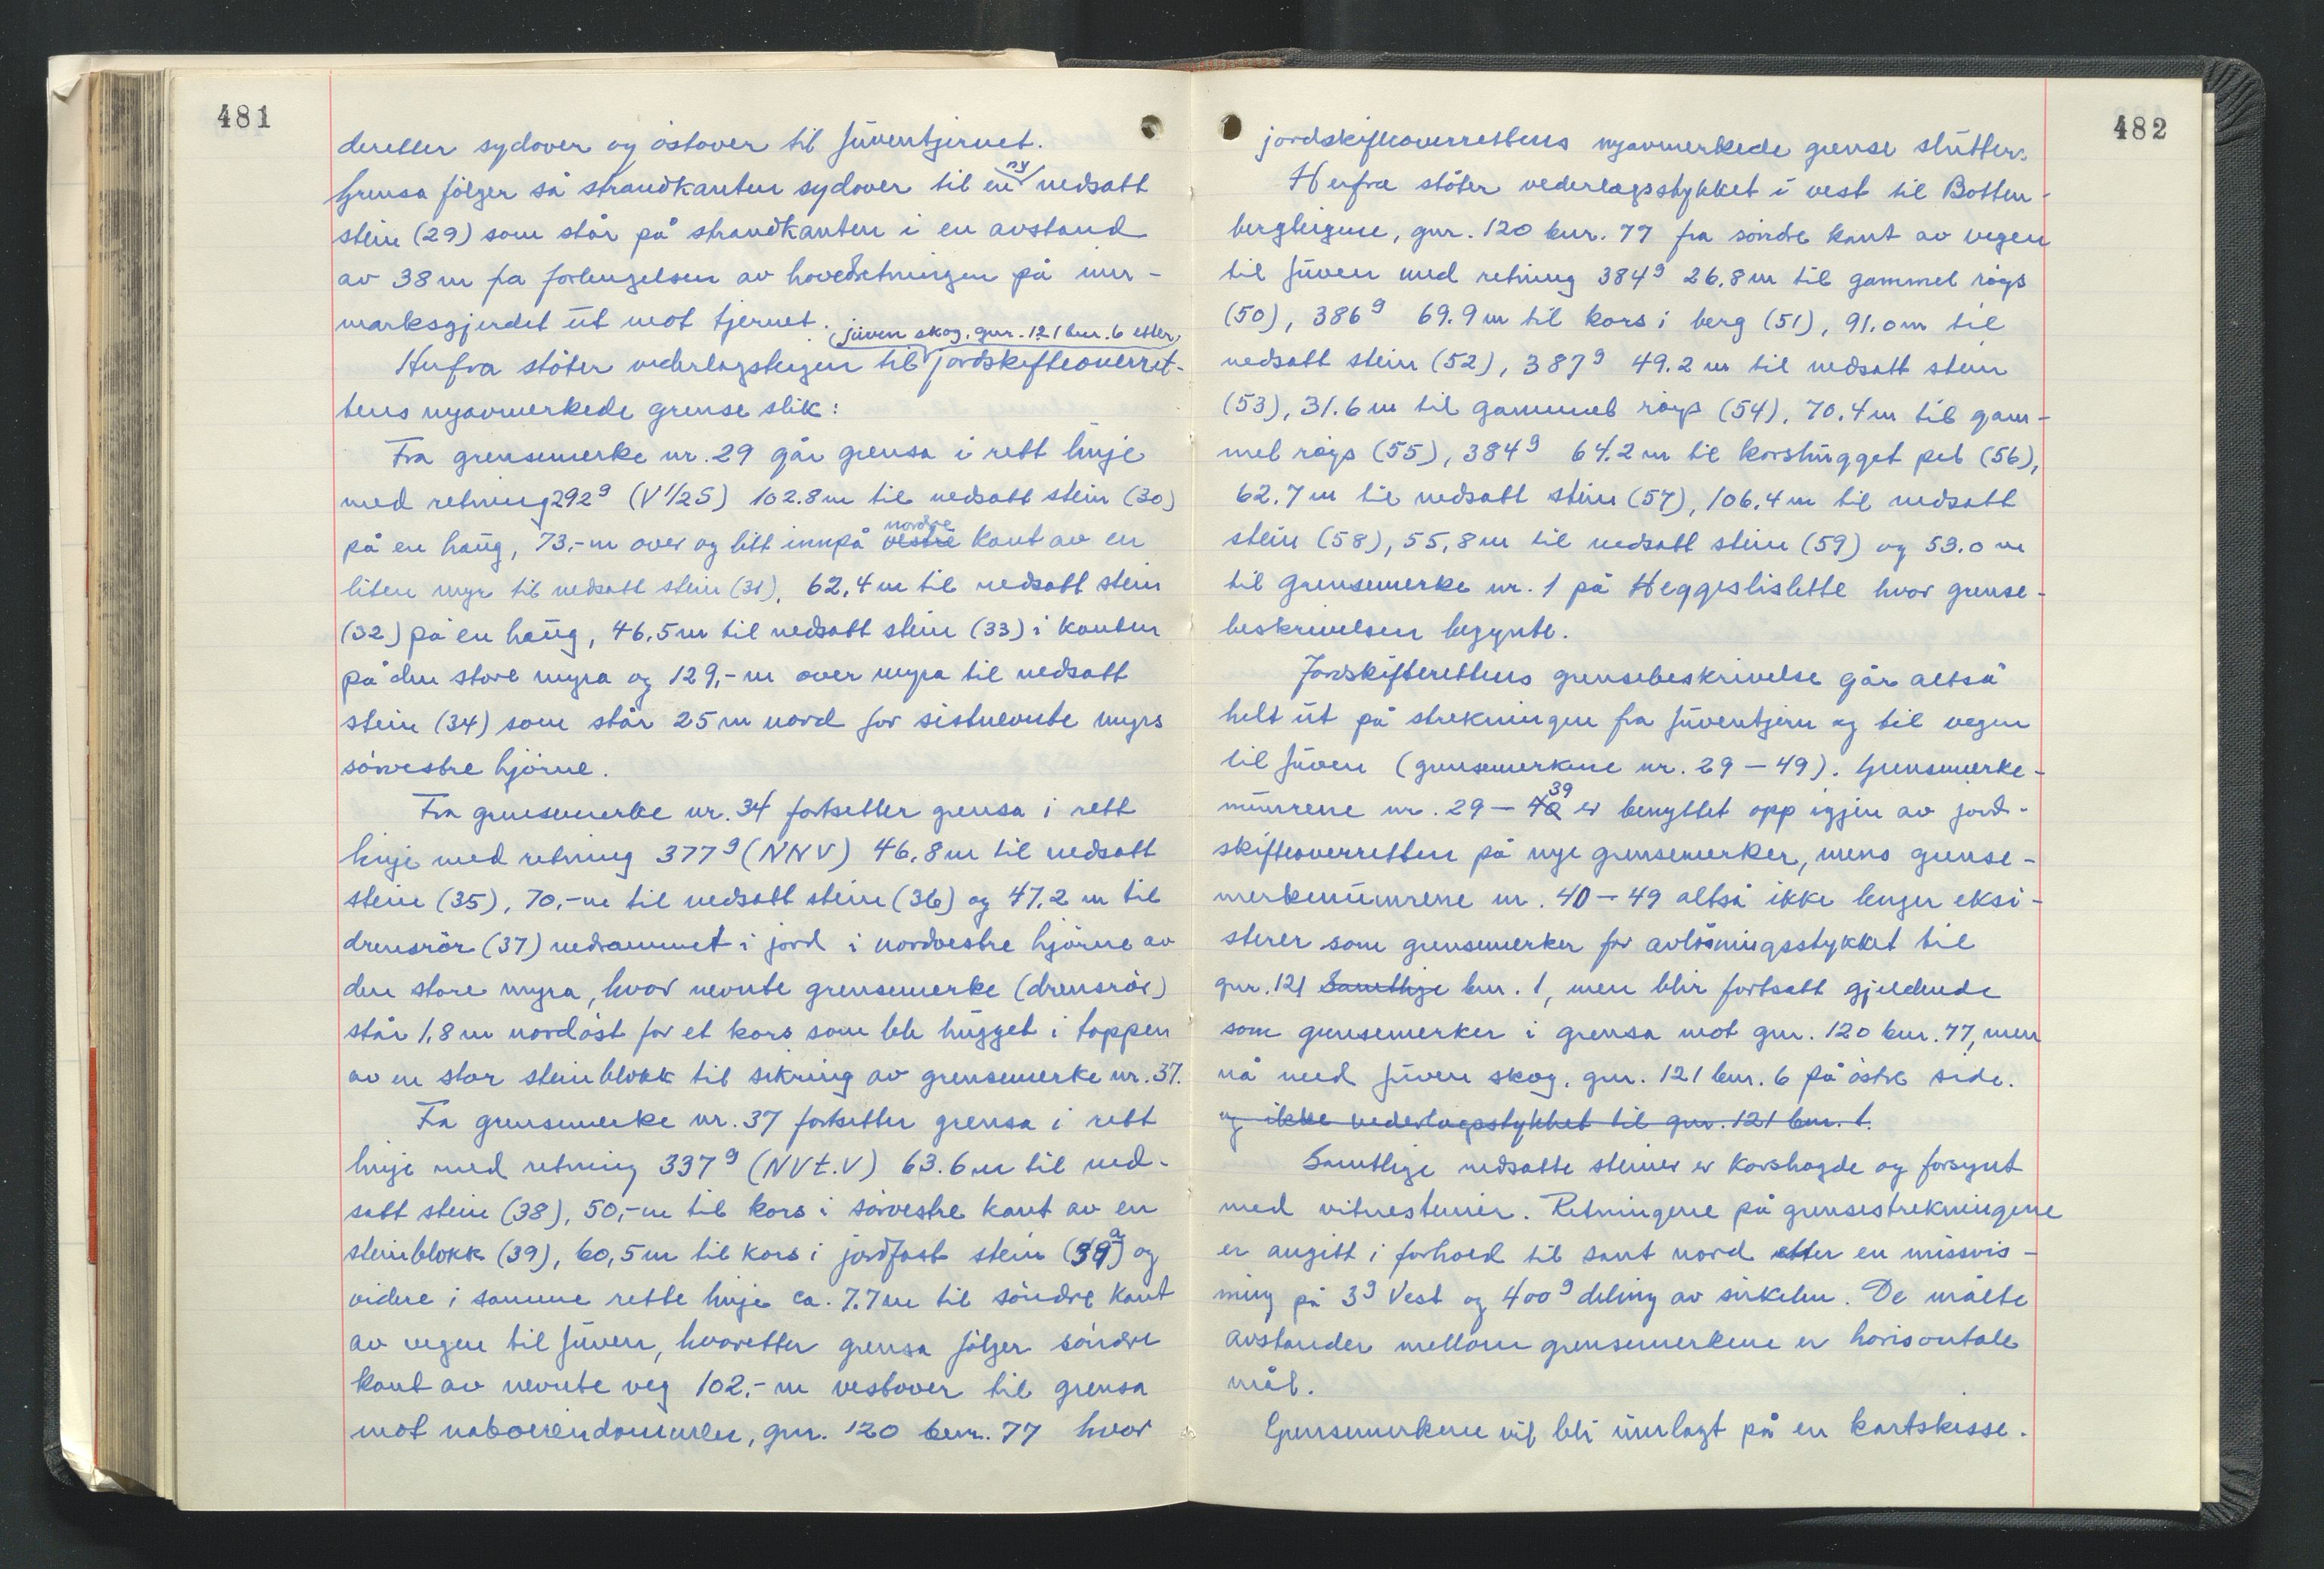 481
deretter sydover og østover til Juventjernet.
Grensa følger så strandkanten sydover til en ny nedsatt
stein (29) som står på strandkanten i en avstand
av 38 m fra forlengelsen av hovedretningen på inn-
marksgjerdet ut mot tjernet.
Herfra støter vederlagsteigen til Juven skog, gnr. 121 bnr. 6 etter jordskifteoverret-
tens nyavmerkede grense slik:
Fra grensemerke nr. 29 går grensa i rett linje
med retning 292g (V 1/2 S) 102.8 m til nedsatt stein (30)
på en haug, 73,- m over og litt innpå vestre nordre kant av en
liten myr til nedsatt stein (31), 62,4 m til nedsatt stein
(32) på en haug, 46,5 m til nedsatt stein (33) i kanten
på den store myra og 129,- m over myra til nedsatt
stein (34) som står 25 m nord for sistnevnte myrs
sørvestre hjørne.
Fra grensemerke nr. 34 fortsetter grensa i rett
linje med retning 377g (NNV) 46,8 m til nedsatt
stein (35), 70,- m til nedsatt stein (36) og 47,2 m til
drensrør (37) nedrammet i jord i nordvestre hjørne av
den store myra, hvor nevnte grensemerke (drensrør)
står 1,8 m nordøst for et kors som ble hugget i toppen
av en stor steinblokk til sikring av grensemerke nr. 37.
Fra grensemerke nr. 37 fortsetter grensa i rett
linje med retning 337g (NVt.V) 63.6 m til ned-
satt stein (38), 50,- m til kors i sørvestre kant av en
steinblokk (39), 60,5 m til kors i jordfast stein (39a) og
videre i samme rette linje ca. 7.7 m til søndre kant
av vegen til Juven, hvoretter grensa følger søndre
kant av nevnte veg 102,- m vestover til grensa
mot naboeiendommen, gnr. 120 bnr. 77 hvor
482
jordskifteoverrettens nyavmerkede grense slutter.
Herfra støter vederlagsstykket i vest til Botten-
bergteigene, gnr. 120 bnr. 77 fra søndre kant av vegen
til Juven med retning 384g 26.8 m til gammel røys
(50), 386g 69.9 m til kors i berg (51), 91.0 m til
nedsatt stein (52), 387g 49.2 m til nedsatt stein
(53), 31.6 m til gammel røys (54), 70.4 m til gam-
mel røys (55), 384g 64.2 m til korshugget pel (56),
62.7 m til nedsatt stein (57), 106.4 m til nedsatt
stein (58), 55,8 m til nedsatt stein (59) og 53.0 m
til grensemerke nr. 1 på Heggeslislette hvor grense-
beskrivelsen begynte.
Jordskifterettens grensebeskrivelse går altså
helt ut på strekningen fra Juventjern og til vegen
til Juven (grensemerkene nr. 29 – 49). Grensemerke-
numrene nr. 29 – 40 39 er benyttet opp igjen av jord-
skifteoverretten på nye grensemerker, mens grense-
merkenumrene nr. 40 – 49 altså ikke lenger eksi-
sterer som grensemerker for avløsningsstykket til
gnr. 121 Samtlige bnr. 1, men blir fortsatt gjeldende
som grensemerker i grensa mot gnr. 120 bnr. 77, men
nå med Juven skog, gnr. 121 bnr. 6 på østre side.
og ikke vederlagsstykket til gnr. 121 bnr. 1.
Samtlige nedsatte steiner er korshogde og forsynt
med vitnesteiner. Retningene på grensestrekningene
er angitt i forhold til sant nord etter en missvis-
ning på 3g Vest og 400g deling av sirkelen. De målte
avstander mellom grensemerkene er horisontale
mål.
Grensemerkene vil bli innlagt på en kartskisse.